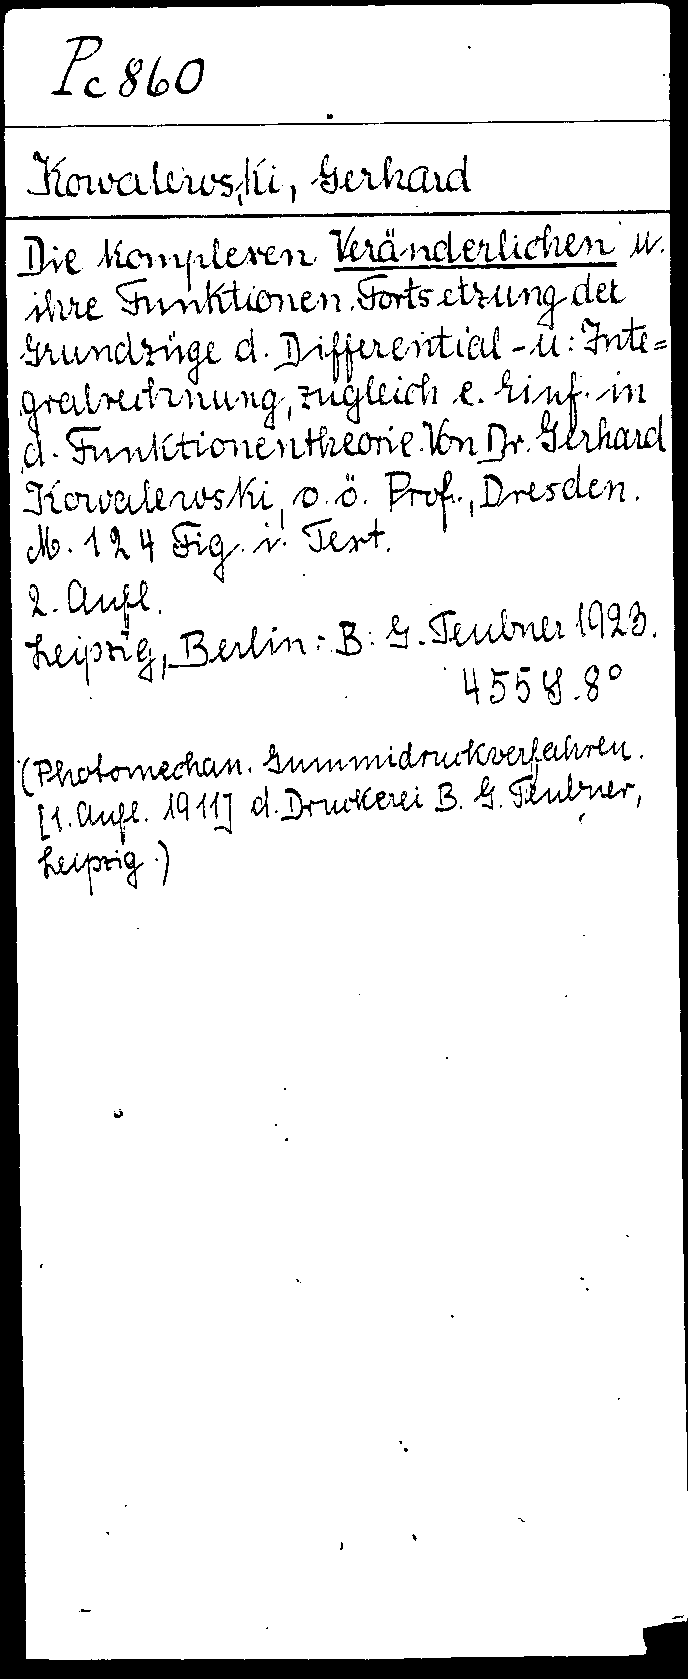 Pc 860
Kowalewski, Gerhard
Die komplexen Veränderlichen u.
ihre Funktionen. Fortsetzung der
Grundzüge d. Differential- u. Inte=
gralrechnung, zugleich e. Einf. in
d. Funktionentheorie. Von Dr. Gerhard
Kowalewski, o. ö. Prof., Dresden.
M. 124 Fig. i. Text.
2. Aufl.
Leipzig, Berlin: B. G. Teubner 1923.
455 S. 8°
(Photomechan. Gummidruckverfahren.
[1. Aufl. 1911] d. Druckerei B. G. Teubner,
Leipzig.)